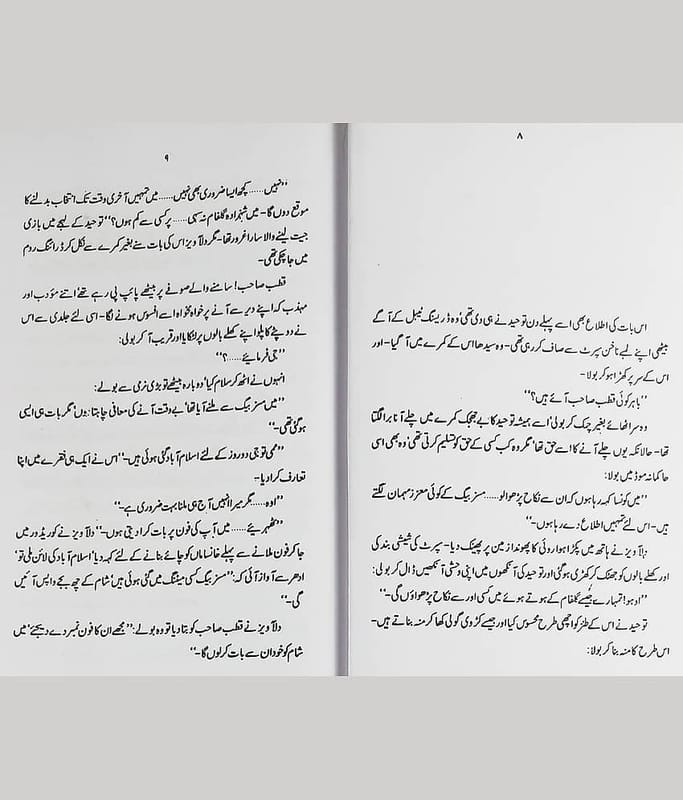 ۸
اس بات کی اطلاع بھی اسے پہلے دن توحید نے ہی دی تھی‘ وہ ڈریسنگ ٹیبل کے آگے
بیٹھی اپنے لمبے ناخن سپرٹ سے صاف کر رہی تھی- وہ سیدھا اس کے کمرے میں آ گیا- اور
اس کے سر پر کھڑا ہو کر بولا-
”باہر کوئی قطب صاحب آئے ہیں؟“
وہ سر اٹھائے بغیر چمک کر بولی‘ اسے ہمیشہ توحید کا بے جھجک کمرے میں چلے آنا برا لگتا
تھا- حالانکہ یوں چلے آنے کا اسے حق تھا‘ مگر وہ کب کسی کے حق کو تسلیم کرتی تھی‘ وہ بھی اسی
حاکمانہ موڈ میں بولا:
”میں کونسا کہہ رہا ہوں کہ ان سے نکاح پڑھوا لو..... مسز بیگ کے کوئی معزز مہمان لگتے
ہیں- اس لئے تمہیں اطلاع دے رہا ہوں-“
دلآویز نے ہاتھ میں پکڑا ہوا روئی کا پھوندا زمین پر پھینک دیا- سپرٹ کی شیشی بند کی
اور کھلے بالوں کو جھٹک کر کھڑی ہو گئی اور توحید کی آنکھوں میں اپنی وحشی آنکھیں ڈال کر بولی:
”اوہو! تمہارے جیسے گلفام کے ہوتے ہوئے میں کسی اور سے نکاح پڑھواؤں گی-“
توحید نے اس کے طنز کو اچھی طرح محسوس کیا اور جیسے کڑوی گولی کھا کر منہ بناتے ہیں-
اس طرح کا منہ بنا کر بولا:
۹
”نہیں...... کچھ ایسا ضروری بھی نہیں...... میں تمہیں آخری وقت تک انتخاب بدلنے کا
موقع دوں گا- میں شہزادہ گلفام نہ سہی..... پر کسی سے کم ہوں؟“ توحید کے لہجے میں بازی
جیت لینے والا سارا غرور تھا- مگر دلآویز اس کی بات سنے بغیر کمرے سے نکل کر ڈرائنگ روم
میں جا چکی تھی-
قطب صاحب! سامنے والے صوفے پر بیٹھے پائپ پی رہے تھے‘ اتنے مؤدب اور
مہذب کہ اپنے دیر سے آنے پر خواہ مخواہ اسے افسوس ہونے لگا- اسی لئے جلدی سے اس
نے دوپٹے کا پلو اپنے کھلے بالوں پر لٹکایا اور قریب آ کر بولی:
”جی فرمائیے.....؟“
انہوں نے اٹھ کر سلام کیا‘ دوبارہ بیٹھے تو بڑی نرمی سے بولے:
”میں مسز بیگ سے ملنے آیا تھا‘ بے وقت آنے کی معافی چاہتا ہوں‘ مگر بات ہی ایسی
ہو گئی تھی-“
”ممی تو جی دو روز کے لئے اسلام آباد گئی ہوئی ہیں-“ اس نے ایک ہی فقرے میں اپنا
تعارف کرا دیا-
”اوہ..... مگر میرا انہیں آج ہی ملنا بہت ضروری ہے-“
”ٹھہرئیے..... میں آپ کی فون پر بات کرا دیتی ہوں-“ دلآویز نے کوریڈور میں
جا کر فون ملانے سے پہلے خانساماں کو چائے بنانے کے لئے کہہ دیا‘ اسلام آباد کی لائن ملی تو‘
ادھر سے آواز آئی کہ: ”مسز بیگ کسی میٹنگ میں گئی ہوئی ہیں‘ شام کے چھ بجے واپس آئیں
گی-“
دلآویز نے قطب صاحب کو بتا دیا تو وہ بولے: ”مجھے ان کا فون نمبر دے دیجئے‘ میں
شام کو خود ان سے بات کر لوں گا-“